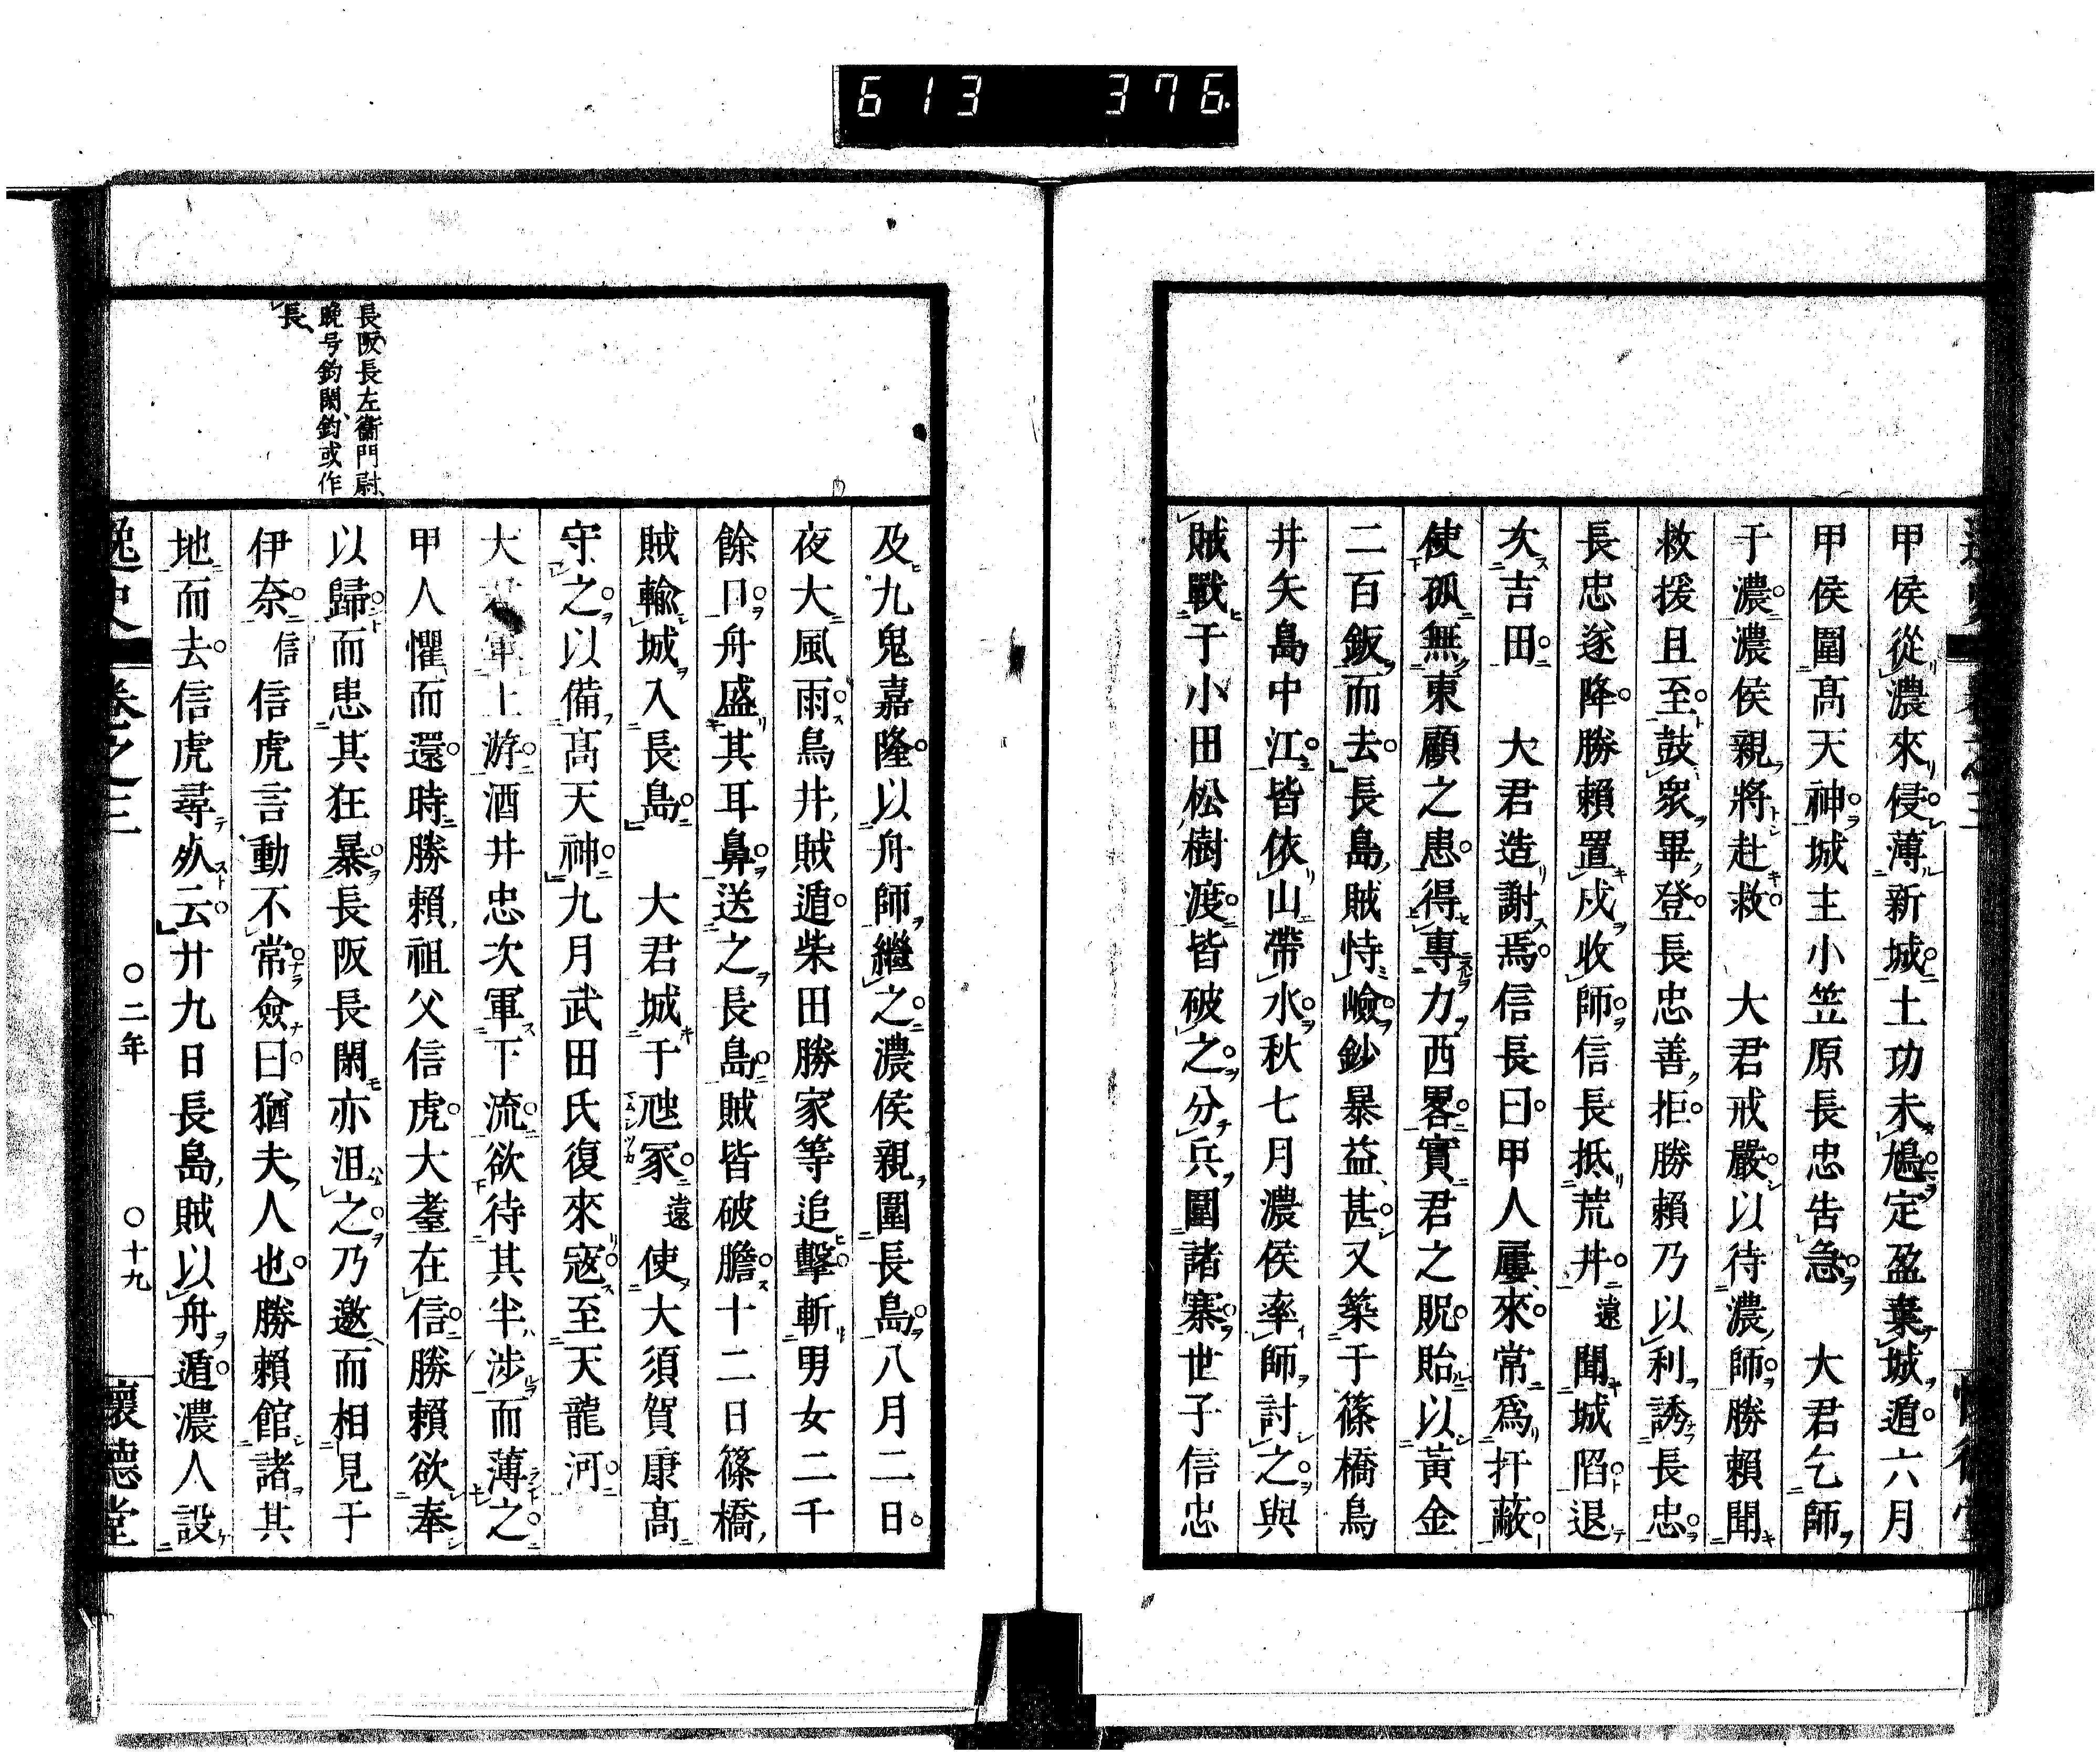 613 376
甲侯從濃來侵薄新城土功未鳩定盈棄城遁六月
甲侯圍髙天神城主小笠原長忠告急　大君乞師
于濃濃侯親將赴救　大君戒嚴以待濃師勝賴聞
救援且至鼓衆畢登長忠善拒勝賴乃以利誘長忠
長忠遂降勝賴置戍收師信長抵荒井遠聞城陷退
次吉田　大君造謝焉信長曰甲人屢來常爲扞蔽
使孤無東顧之患得專力西畧實君之貺貽以黃金
二百鈑而去長島賊恃嶮鈔暴益甚又築于篠橋鳥
井矢島中江皆依山帶水秋七月濃侯率師討之與
賊戰于小田松樹渡皆破之分兵圍諸寨世子信忠
及九鬼嘉隆以舟師繼之濃侯親圍長島八月二日
夜大風雨鳥井賊遁柴田勝家等追擊斬男女二千
餘口舟盛其耳鼻送之長島賊皆破膽十二日篠橋
賊輸城入長島　大君城于虺冢遠使大須賀康髙
守之以備髙天神九月武田氏復來寇至天龍河
大軍上游酒井忠次軍下流欲待其半涉而薄之
甲人懼而還時勝賴祖父信虎大耋在信勝賴欲奉
以歸而患其狂暴長阪長閑亦沮之乃邀而相見于
伊奈信信虎言動不常僉曰猶夫人也勝賴館諸其
地而去信虎尋㱙云廿九日長島賊以舟遁濃人設
長阪長左衞門尉
晩号釣閑釣或作
長
逸史 卷之三 〇二年 〇十九 懷德堂